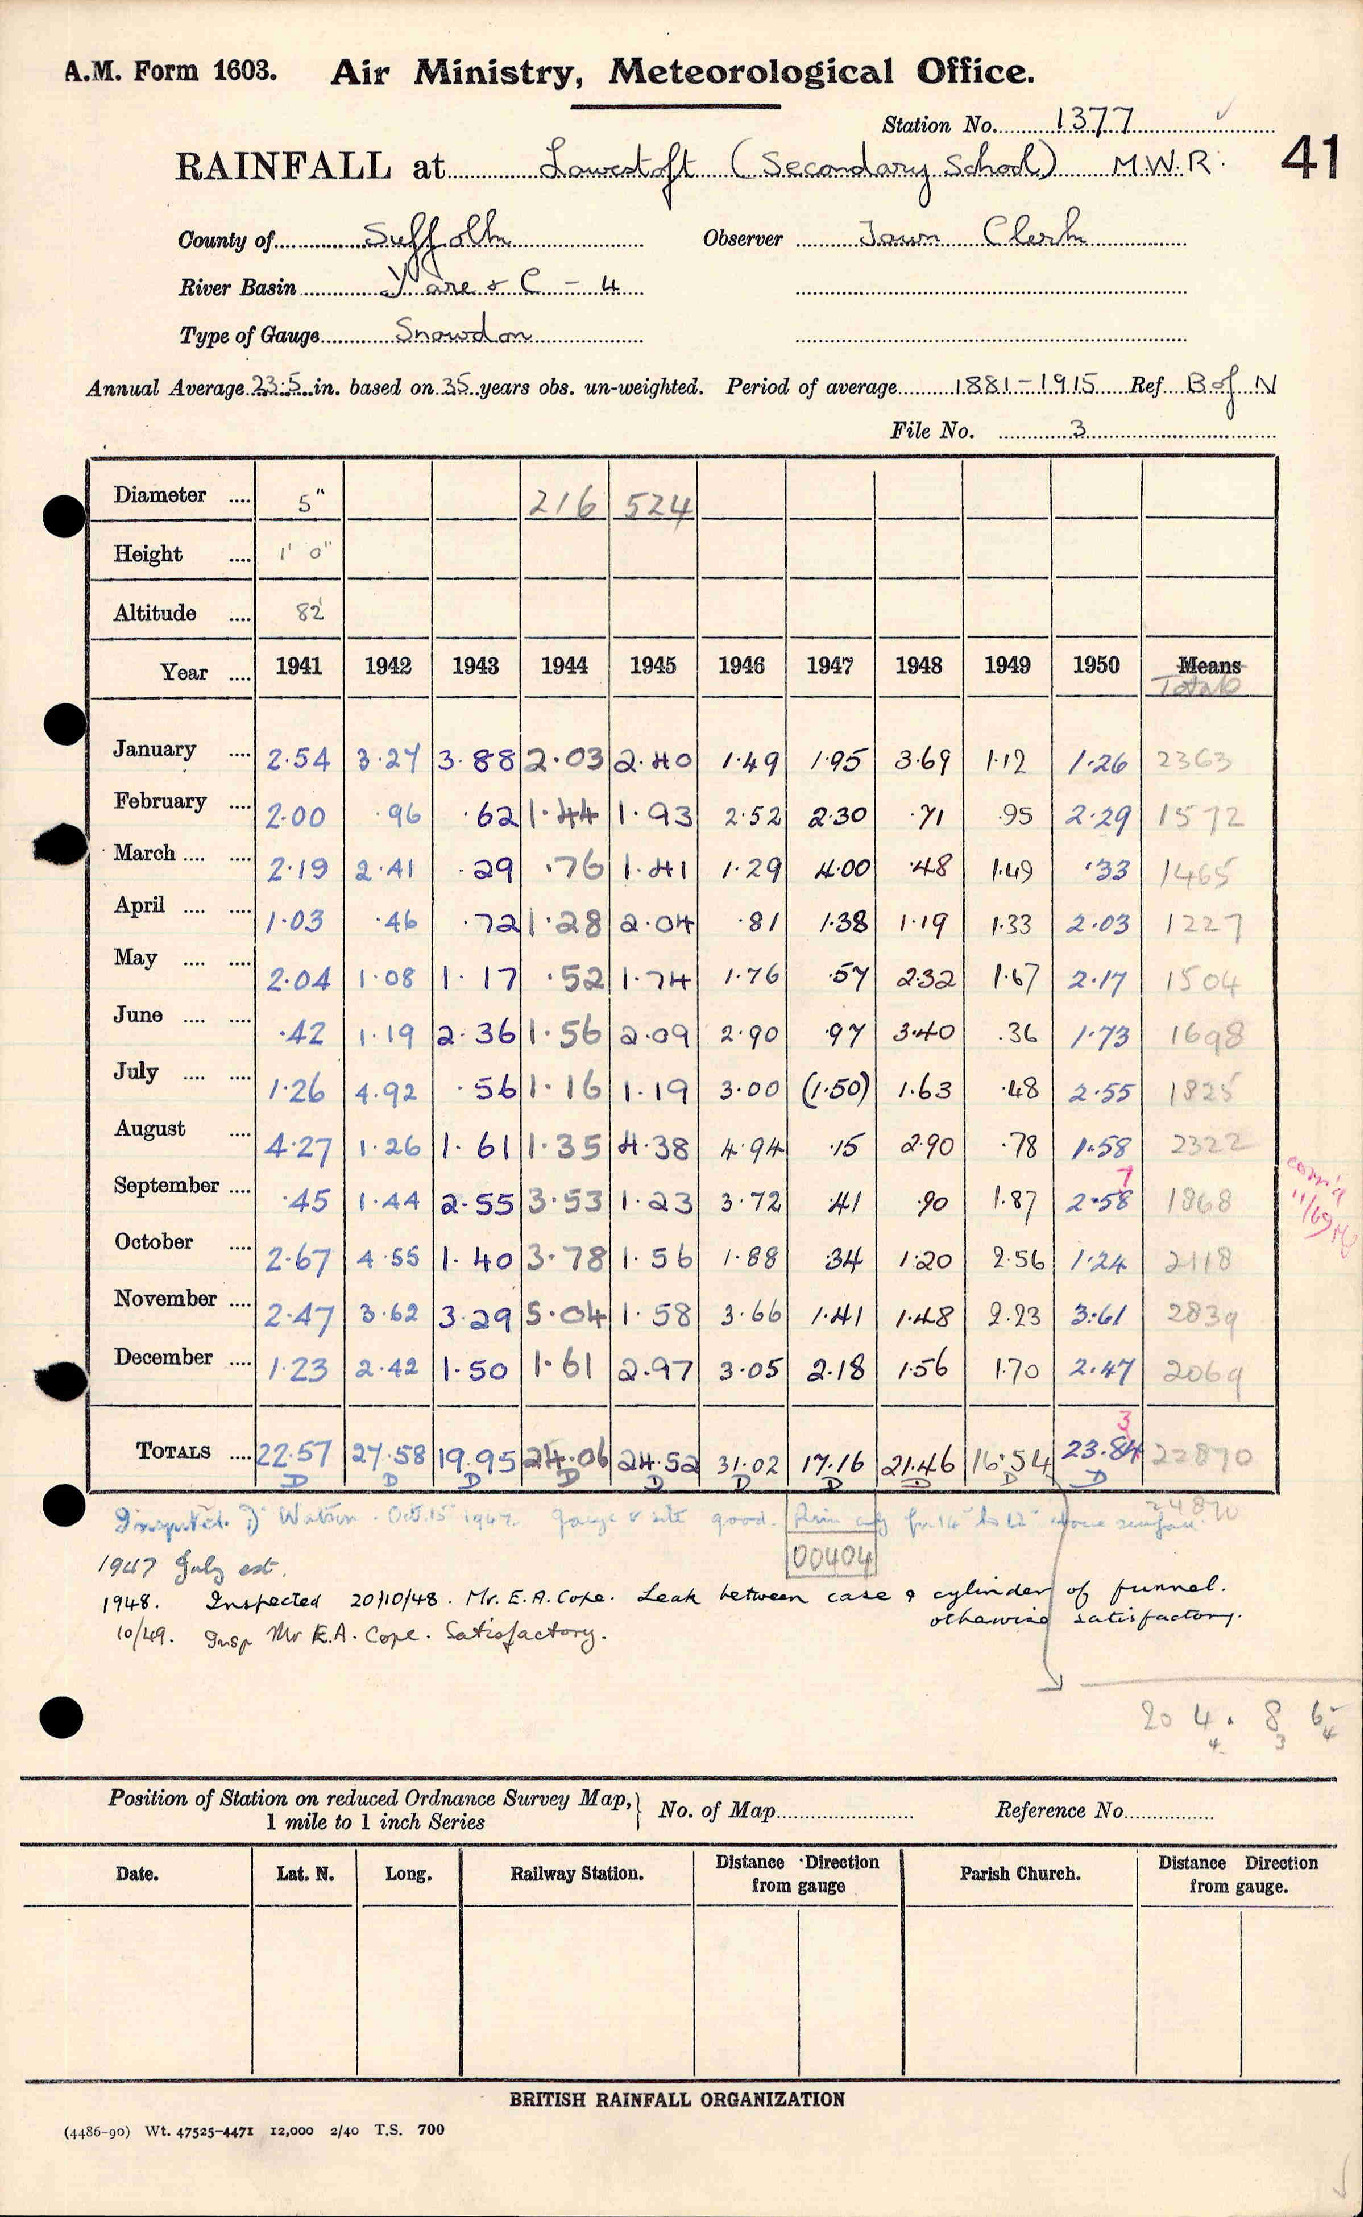 A.M. Form 1603. Air Ministry, Meteorological Office.
Station No. 1377
RAINFALL at Lowestoft (Secondary School) M.W.R. 41
County of Suffolk Observer Town Clerk
River Basin Yare & C - 4
Type of Gauge Snowdon
Annual Average 23.5 in. based on 35 years obs. un-weighted. Period of average 1881-1915 Ref B of N
File No. 3
Diameter .... 5" 216 524
Height .... 1' 0"
Altitude .... 82'
Year .... 1941 1942 1943 1944 1945 1946 1947 1948 1949 1950 Means
Totals
January .... 2.54 3.27 3.88 2.03 2.40 1.49 1.95 3.69 1.12 1.26 2363
February .... 2.00 .96 .62 1.44 1.93 2.52 2.30 .71 .95 2.29 1572
March .... .... 2.19 2.41 .29 .76 1.41 1.29 4.00 .48 1.49 .33 1465
April .... .... 1.03 .46 .72 1.28 2.04 .81 1.38 1.19 1.33 2.03 1227
May .... .... 2.04 1.08 1.17 .52 1.74 1.76 .57 2.32 1.67 2.17 1504
June .... .... .42 1.19 2.36 1.56 2.09 2.90 .97 3.40 .36 1.73 1698
July .... .... 1.26 4.92 .56 1.16 1.19 3.00 (1.50) 1.63 .48 2.55 1825
August .... 4.27 1.26 1.61 1.35 4.38 4.94 .15 2.90 .78 1.58 2322
7
September .... .45 1.44 2.55 3.53 1.23 3.72 .41 .90 1.87 2.58 1868
October .... 2.67 4.55 1.40 3.78 1.56 1.88 .34 1.20 2.56 1.24 2118
November .... 2.47 3.62 3.29 5.04 1.58 3.66 1.41 1.48 2.23 3.61 2839
December .... 1.23 2.42 1.50 1.61 2.97 3.05 2.18 1.56 1.70 2.47 2069
3
TOTALS .... 22.57 27.58 19.95 24.06 24.52 31.02 17.16 21.46 16.54 23.84 22870
D D D D D D D D D D
11/69
Inspected. D Watson. Oct. 15 1947. Gauge & site good. Rim only for 14" to 12" above surface. 24870
00404
1947 July est.
1948. Inspected 20/10/48. Mr. E.A. Cope. Leak between case & cylinder of funnel.
otherwise satisfactory.
10/49. Insp Mr E.A. Cope. Satisfactory.
20 4. 8 6
4 3 4
Position of Station on reduced Ordnance Survey Map, No. of Map Reference No.
1 mile to 1 inch Series
Date. Lat. N. Long. Railway Station. Distance Direction from gauge Parish Church. Distance Direction from gauge.
BRITISH RAINFALL ORGANIZATION
(4486-90) Wt. 47525-4471 12,000 2/40 T.S. 700